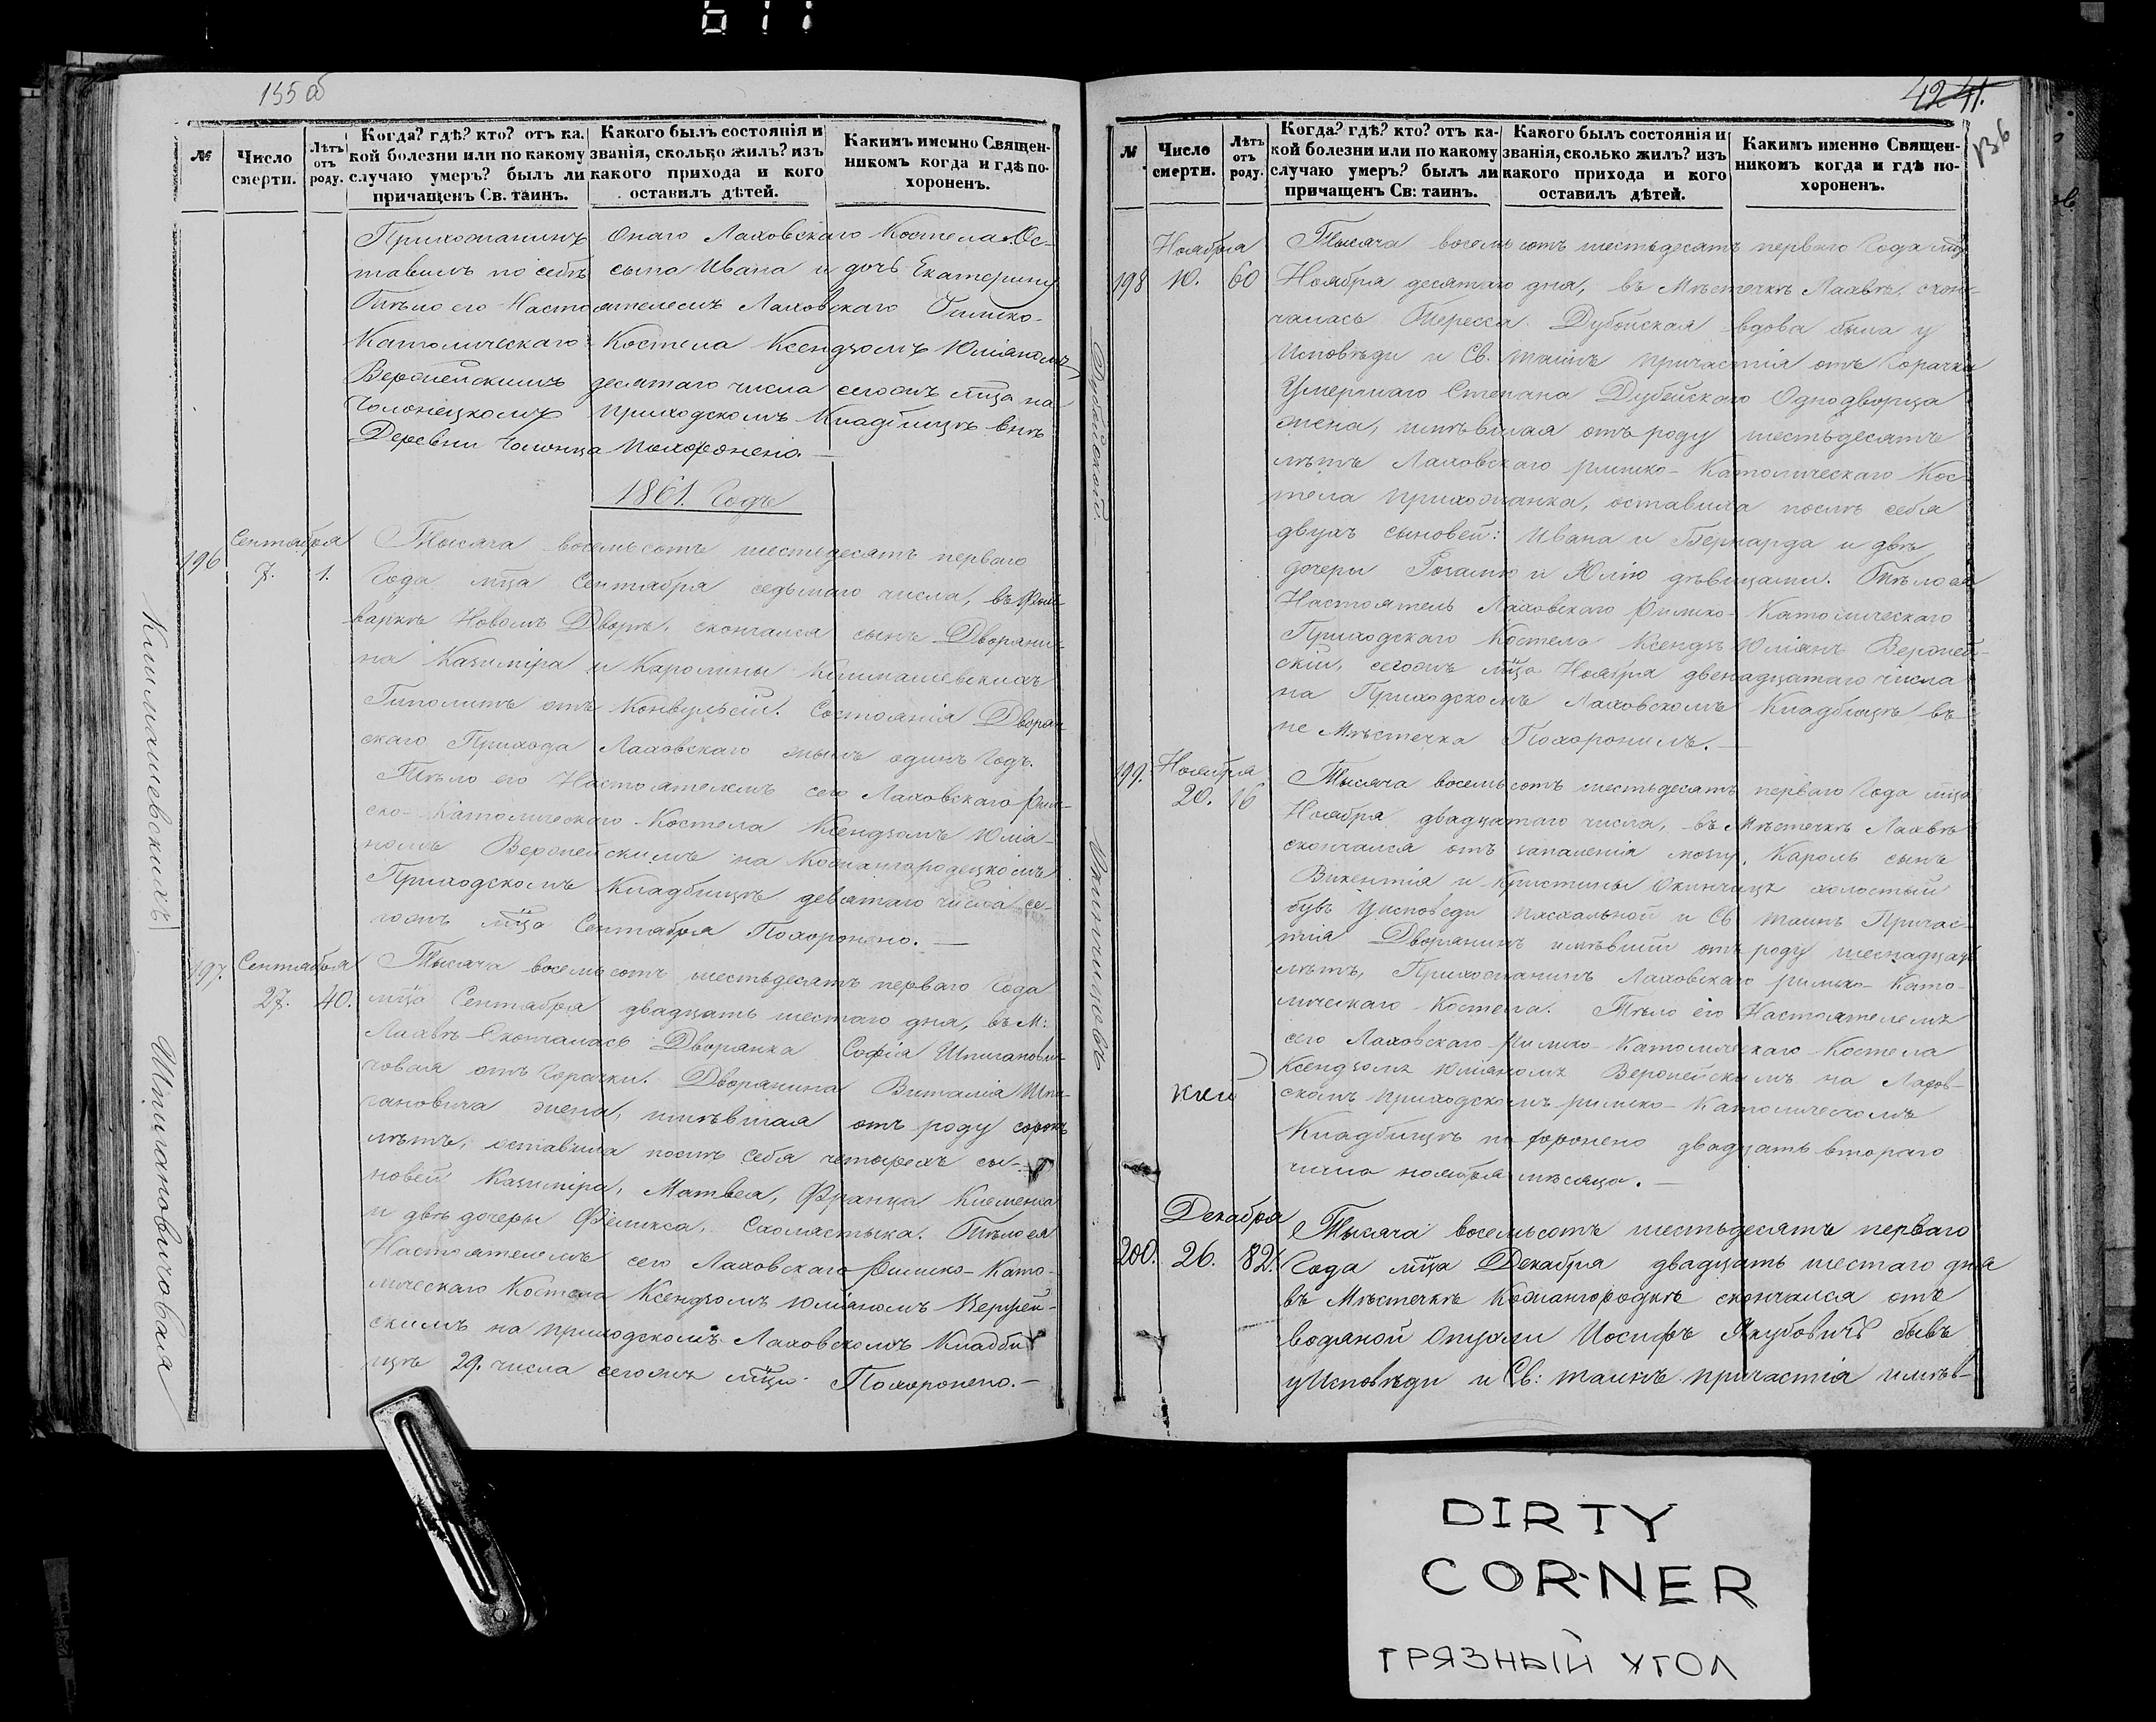 611
155 об
№
Число смерти.
Лѣтъ отъ роду.
Когда? гдѣ? кто? отъ ка-
кой болезни или по какому
случаю умеръ? былъ ли
причащенъ Св. таинъ.
Какого былъ состоянія и
званія, сколько жилъ? изъ
какого прихода и кого
оставилъ дѣтей.
Каким именно Священ-
никомъ когда и гдѣ по-
хороненъ.
Прихожанинъ Онаго Лаховскаго Костела. Ос-
тавилъ по себѣ сына Ивана и дочь Екатерину
Тѣло его Настоятелемъ Лаховскаго Римско-
Католическаго Костела Ксендзомъ Юліаномъ
Веропейскимъ десятаго числа сегожъ мца на
приходскомъ Кладбищѣ внѣ
Деревни Похоронено.
1861. Годъ
Сентября
196 7. 1.
Тысяча восемьсотъ шестьдесятъ перваго
Года мца Сентября седьмаго числа, въ Фоль-
варкѣ Новомъ Дворѣ, скончался сынъ Дворяни-
на Казиміра и Каролины Климашевскихъ
Гиполитъ отъ Конвульсій. Состоянія Дворян-
скаго Прихода Лаховскаго жилъ одинъ годъ.
Тѣло его Настоятелемъ сего Лаховскаго Рим-
ско-Католическаго Костела Ксендзомъ Юліа-
номъ Веропейскимъ на Кожангородецкомъ
Приходскомъ Кладбищѣ девятаго числа се-
гожъ мца Сентября Похоронено.
Климашевскихъ
197. Сентября
27. 40.
Тысяча восемьсотъ шестьдесятъ перваго Года
мца Сентября двадцать шестаго дня, въ М:
Лахвѣ Скончалась Дворянка Софія Шпиганови-
човая отъ Горачки. Дворянина Виталія Шпи-
гановича жена, имѣвшая отъ роду сорокъ
лѣтъ, оставила послѣ себя четырехъ сы-
новей Казиміра, Матвея, Франца Клеменса
и двѣ дочеры Феликса, Схоластыка. Тѣло ея
Настоятелемъ сего Лаховскаго Римско-Като-
лическаго Костела Ксендзомъ Юліаномъ Верпей-
скимъ на приходскомъ Лаховскомъ Кладби-
щѣ 29. числа сегожъ мца Похоронено.
Шпигановичовая
42 41.
136
№
Число смерти.
Лѣтъ отъ роду.
Когда? гдѣ? кто? отъ ка-
кой болезни или по какому
случаю умеръ? былъ ли
причащенъ Св: таинъ.
Какого былъ состоянія и
званія, сколько жилъ? изъ
какого прихода и кого
оставилъ дѣтей.
Каким именно Священ-
никомъ когда и гдѣ по-
хороненъ.
Ноября
198 10. 60
Тысяча восемьсотъ шестьдесятъ перваго Года мца
Ноября десятаго дня, въ Мѣстечкѣ Лахвѣ, скон-
чалась Тересса Дубойская вдова была у
Исповѣди и Св. таинъ причастія отъ Горачки
Умершаго Степана Дубейскаго Однодворца
жена, имѣвшая отъ роду шестьдесятъ
лѣтъ Лаховскаго римско-Католическаго Кос-
тела прихожанка, оставила послѣ себя
двухъ сыновей: Ивана и Бернарда и двѣ
дочеры Розалію и Юлію дѣвицами. Тѣло ея
Настоятель Лаховскаго Римско-Католическаго
Приходскаго Костела Ксендзъ Юліанъ Веропей-
скій, сегожъ мца Ноября двенадцатаго числа
на Приходскомъ Лаховскомъ Кладбищѣ въ-
не Мѣстечка Похоронилъ.
Дубойской.
199. Ноября
20. 16
Тысяча восемьсотъ шестьдесятъ перваго Года мца
Ноября двадцатаго числа, въ Мѣстечкѣ Лахвѣ
скончался отъ запаленія мозгу, Кароль сынъ
Викентія и Кристины холостый
бувъ Уисповеди пасхальной и Св таинъ Причас-
тія Дворянинъ имѣвшій отъ роду шеснадцать
лѣтъ, Прихожанинъ Лаховскаго римско-Като-
лическаго Костела. Тѣло его Настоятелемъ
сего Лаховскаго Римско-Католическаго Костела
Ксендзомъ Юліаномъ Веропейскимъ на Лахов-
скомъ приходскомъ римско-Католическомъ
Кладбищѣ похоронено двадцать втораго
числа ноября мѣсяца.
Декабря
200. 26. 82.
Тысяча восемьсотъ шестьдесятъ перваго
Года мца Декабря двадцать шестаго дня
въ Мѣстечкѣ Кожангородкѣ скончался отъ
водяной Опухли Иосифъ Якубовичъ бывъ
уИсповѣди и Св: таинъ причастія имѣв-
DIRTY
CORNER
ГРЯЗНЫЙ УГОЛ